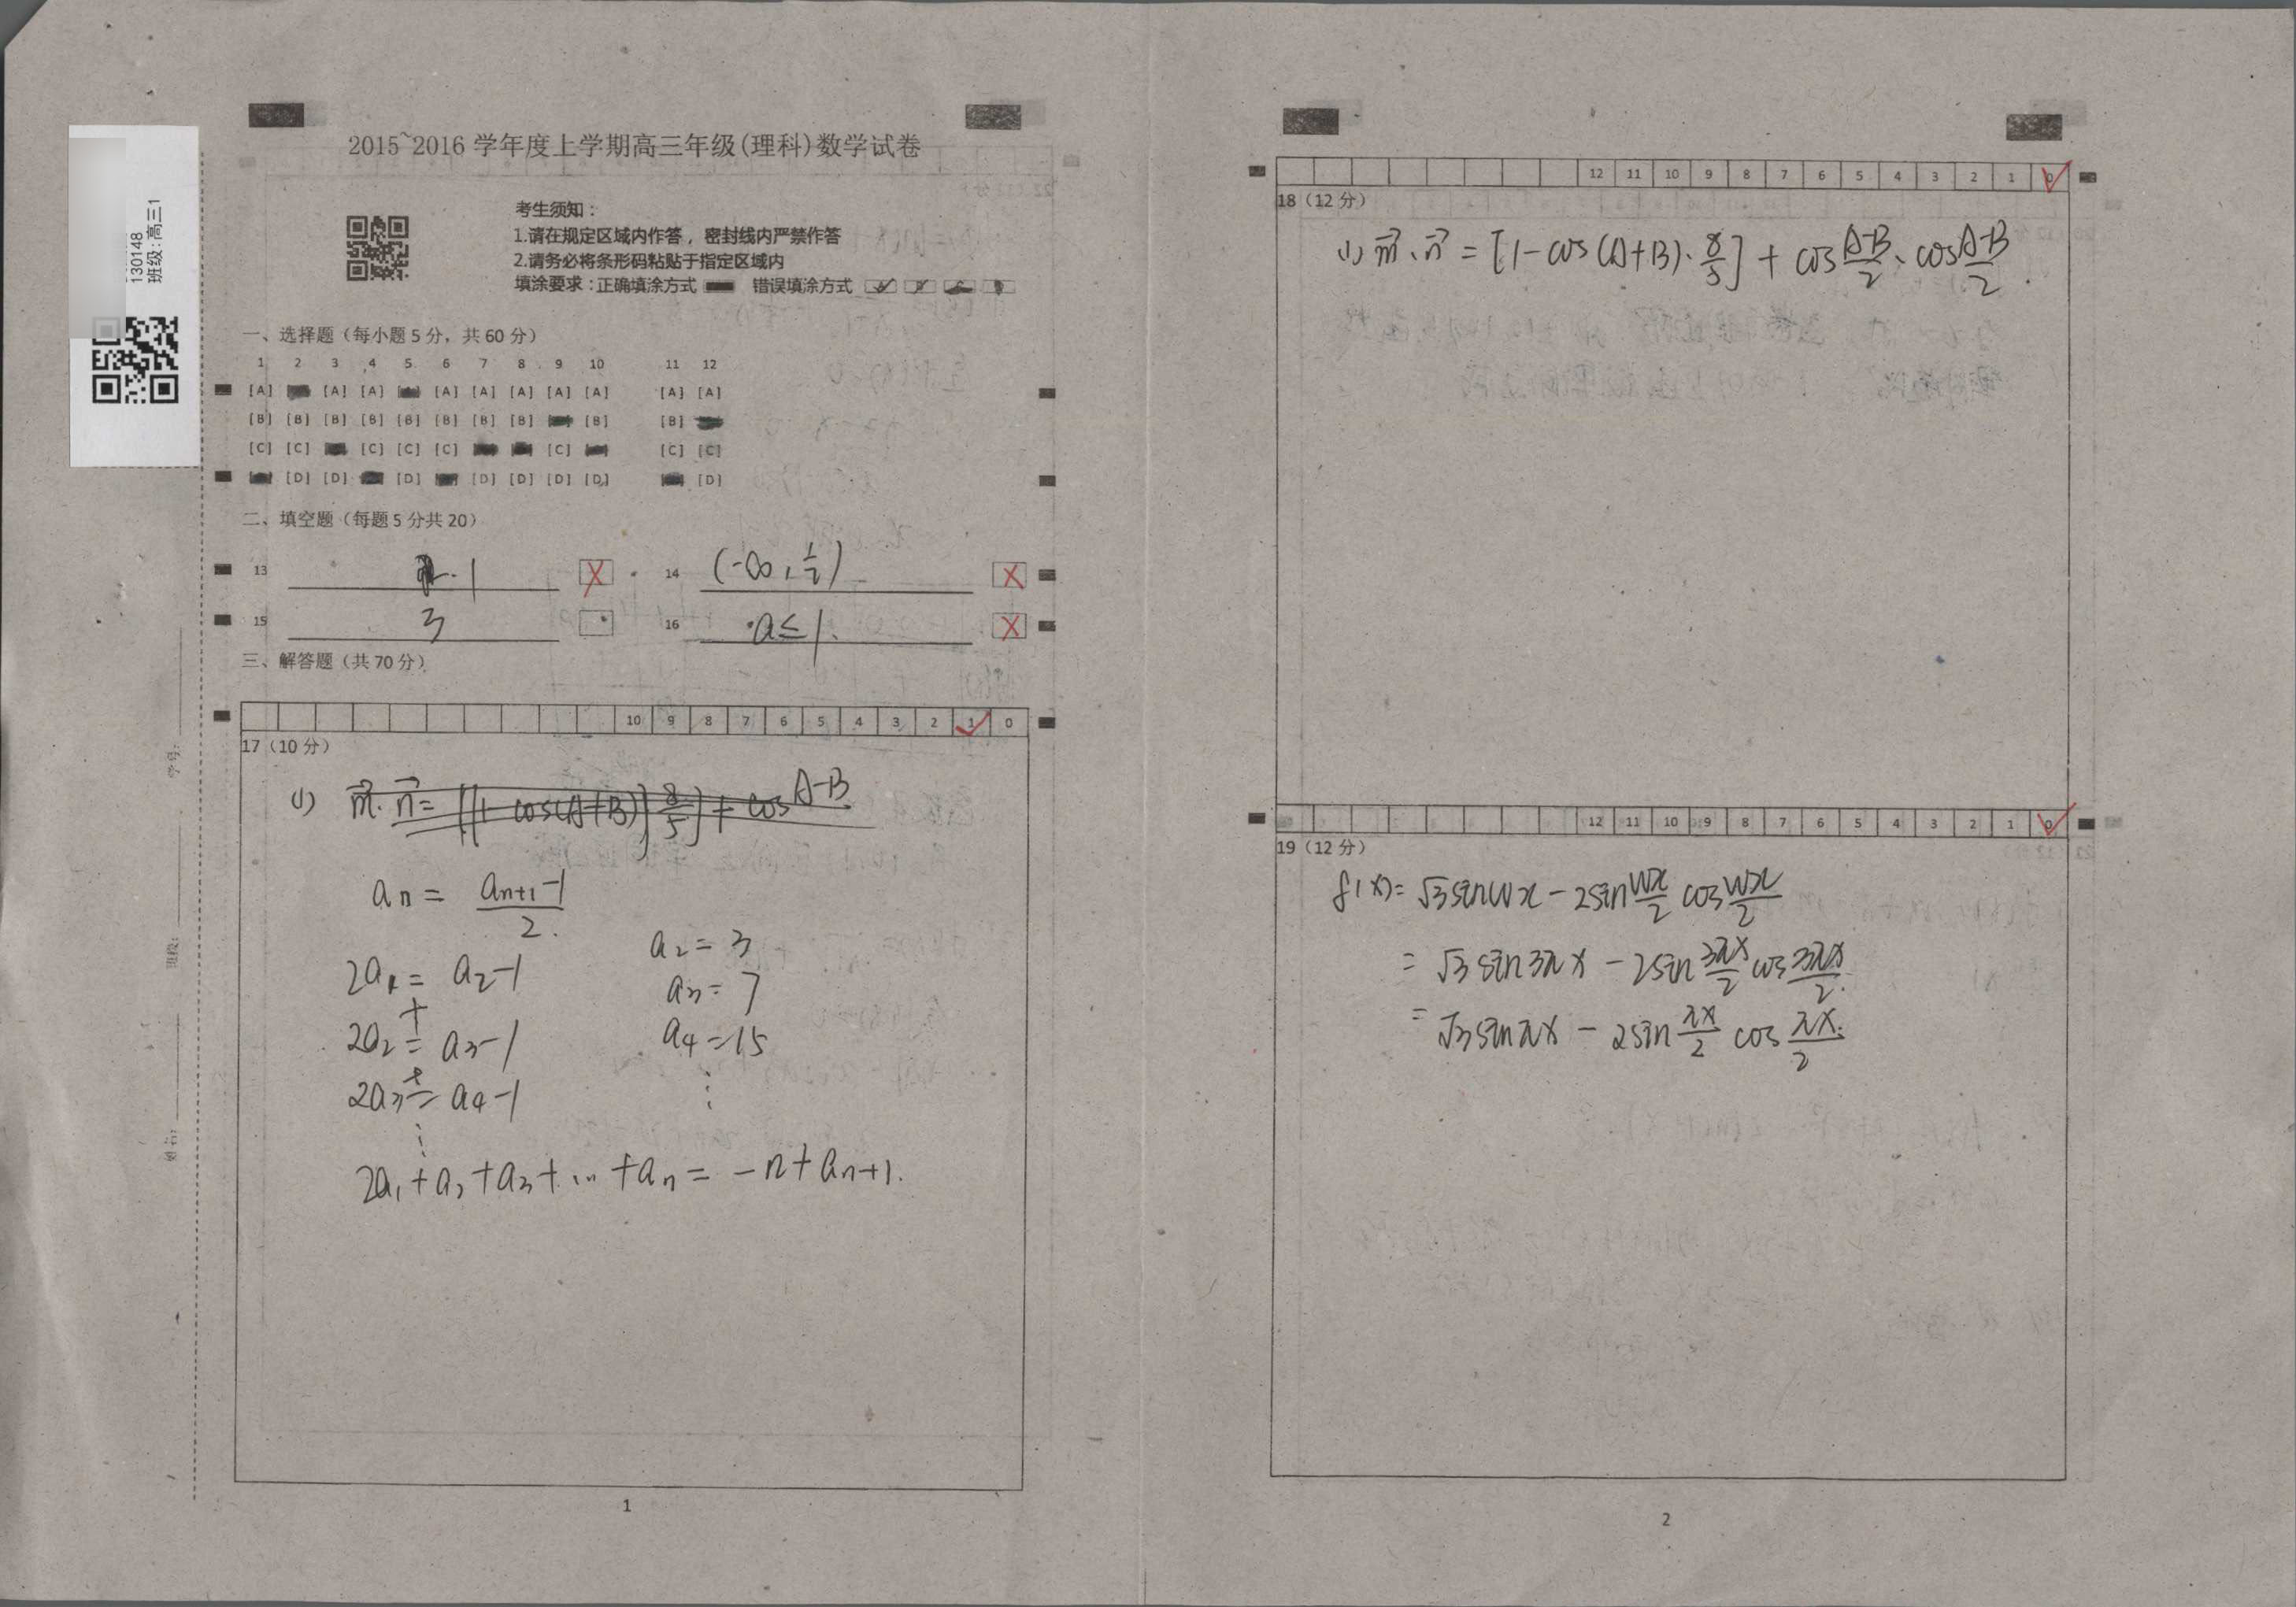 130148
班级:高三1
学号:
班级:
姓名:
2015~2016 学年度上学期高三年级(理科)数学试卷
考生须知：
1.请在规定区域内作答，密封线内严禁作答
2.请务必将条形码粘贴于指定区域内
填涂要求：正确填涂方式 错误填涂方式
一、选择题（每小题 5 分，共 60 分）
1 2 3 4 5 6 7 8 9 10 11 12
[A] [A] [A] [A] [A] [A] [A] [A] [A] [A]
[B] [B] [B] [B] [B] [B] [B] [B] [B] [B]
[C] [C] [C] [C] [C] [C] [C] [C]
[D] [D] [D] [D] [D] [D] [D] [D]
二、填空题（每题 5 分共 20）
13 1 14 (-∞,1/2)
15 3 16 a≤1.
三、解答题（共 70 分）
10 9 8 7 6 5 4 3 2 1 0
17（10 分）
(1) m⃗·n⃗=[(1-cos(A+B))8/5]+cos A-B
an = (an+1-1)/2.
2a1= a2-1
a2= 3
+
a3= 7
2a2= a3-1
a4=15
+
2a3= a4-1
⋮
⋮
2a1+a2+a3+...+an= -n+an+1.
1
12 11 10 9 8 7 6 5 4 3 2 1 0
18（12 分）
(1) m⃗·n⃗ = [1-cos(A+B)·8/5] + cos (A-B)/2 · cos (A-B)/2.
12 11 10 9 8 7 6 5 4 3 2 1 0
19（12 分）
f(x)= √3sinwx-2sin wx/2 cos wx/2
= √3sin3πx-2sin 3πx/2 cos 3πx/2.
= √3sinπx - 2sin πx/2 cos πx/2.
2